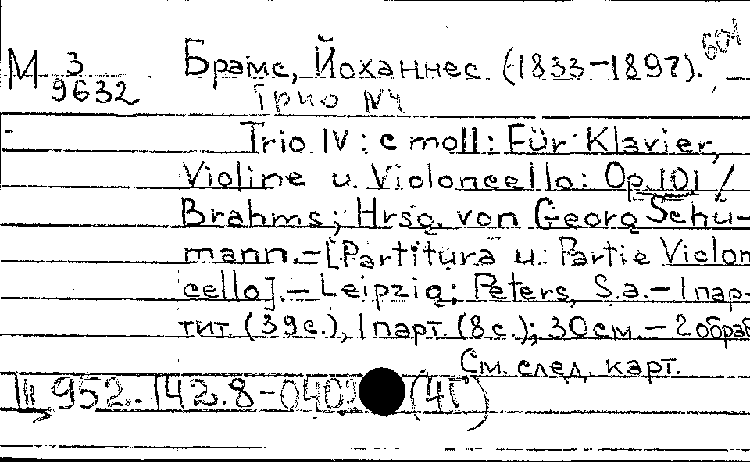 М 3/9632 Брамс, Йоханнес. (1833-1897). 604
Трио N4
Trio IV: c moll: Für Klavier,
Violine u. Violoncello: Op. 101 /
Brahms; Hrsg. von Georg Schu-
mann.-[Partitura u. Partie Violon
cello].-Leipzig; Peters, S.a.-1 пар-
тит. (39с.), 1 парт. (8с.); 30см.-2 обраб
См. след. карт.
952.142.8-040